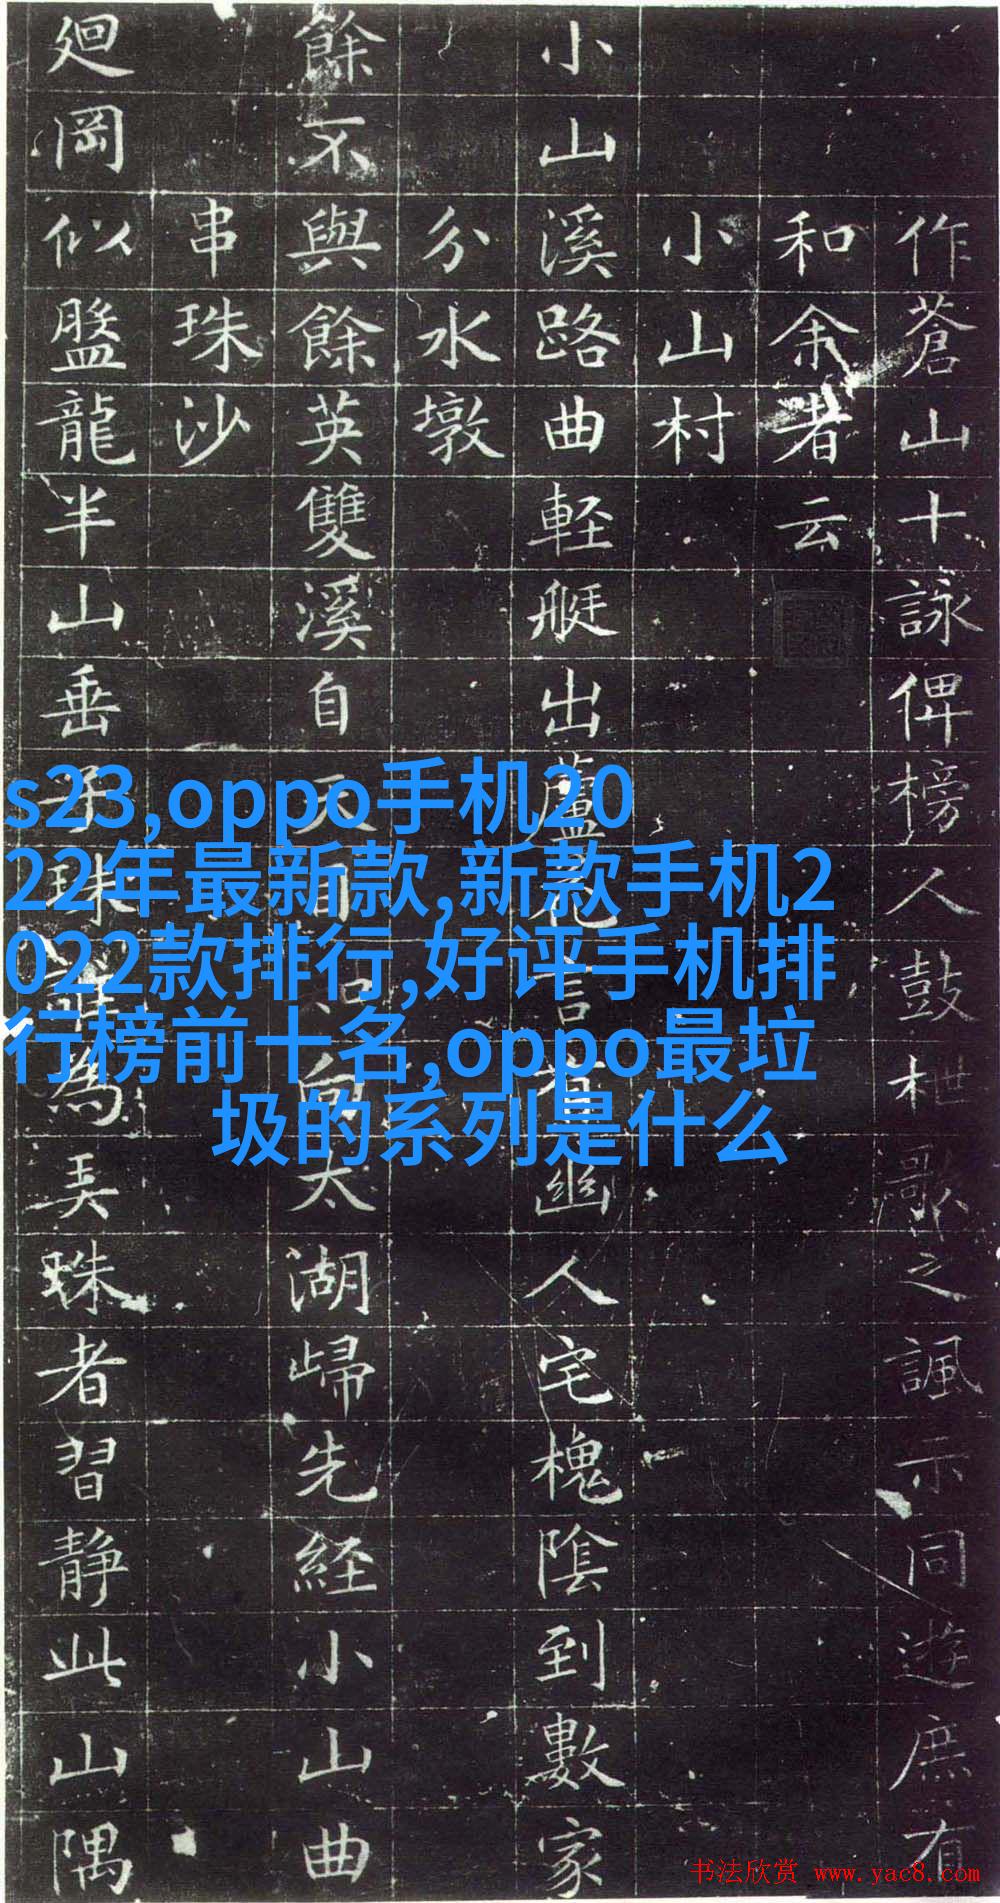 作蒼山十詠俾榜人鼓枻歌之諷示同遊庶有
和余者云
小山村
小山溪路曲軽艇出蘆言有幽人宅槐陰到數家
分水墩
餘不與餘英雙溪自天自太湖歸先経小山曲
串珠沙
廻岡似盤龍半山垂子珠為弄珠者習静此山隅
s23,oppo手机20
22年最新款,新款手机2
022款排行,好评手机排
行榜前十名,oppo最垃
圾的系列是什么
书法欣赏 www.yac8.com